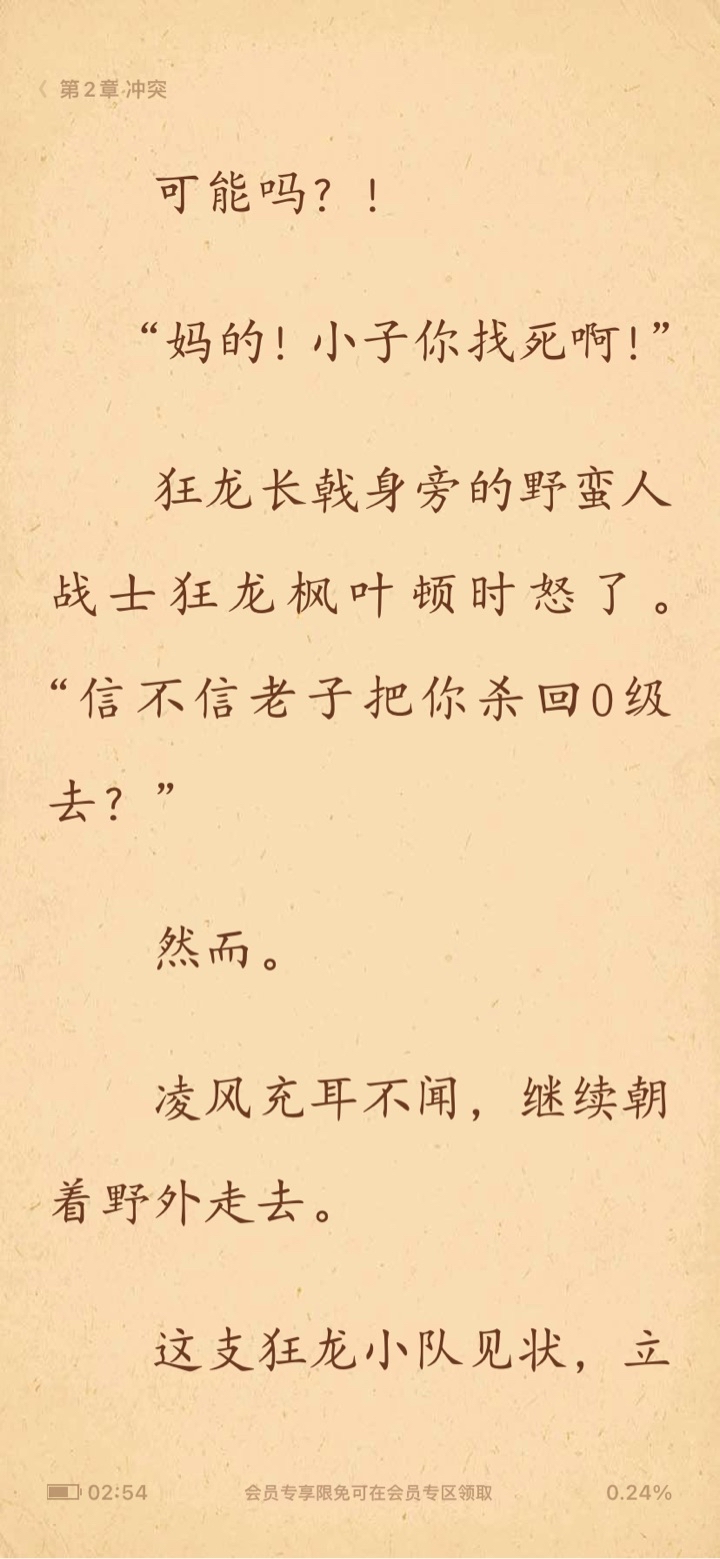 〈 第2章 冲突
可能吗？！
“妈的！小子你找死啊！”
狂龙长戟身旁的野蛮人
战士狂龙枫叶顿时怒了。
“信不信老子把你杀回0级
去？”
然而。
凌风充耳不闻，继续朝
着野外走去。
这支狂龙小队见状，立
02:54 会员专享限免可在会员专区领取 0.24%